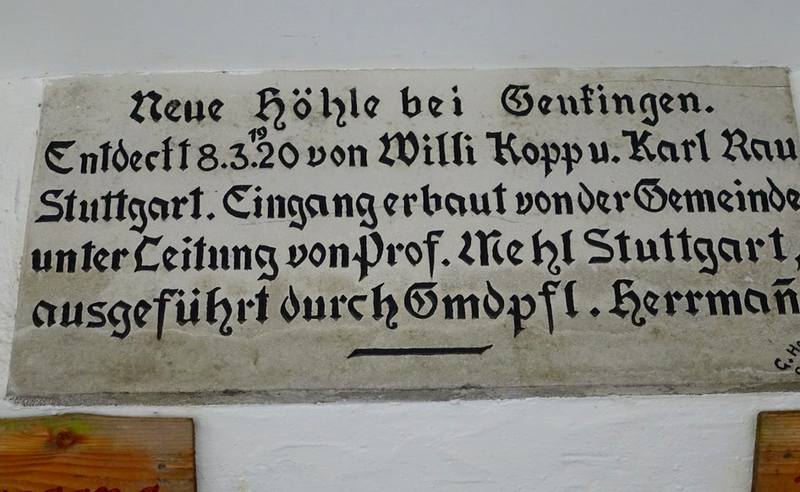 Neue Höhle bei Genkingen.
Entdeckt 8.3.1920 von Willi Kopp u. Karl Rau
Stuttgart. Eingang erbaut von der Gemeinde
unter Leitung von Prof. Mehl Stuttgart,
ausgeführt durch Gmdpfl. Herrmañ